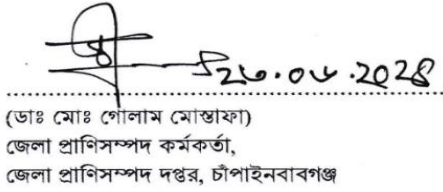 ২৩.০৬.২০২৪
(ডাঃ মোঃ গোলাম মোস্তাফা)
জেলা প্রাণিসম্পদ কর্মকর্তা,
জেলা প্রাণিসম্পদ দপ্তর, চাঁপাইনবাবগঞ্জ